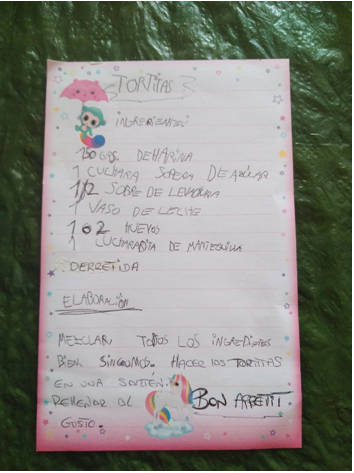 TORTITAS
INGREDIENTES
150 GRS. DE HARINA
1 CUCHARA SOPERA DE AZUCAR
1/2 SOBRE DE LEVADURA
1 VASO DE LECHE
1 o 2 HUEVOS
1 CUCHARADITA DE MANTEQUILLA
DERRETIDA
ELABORACIÓN
MEZCLAR, TODOS LOS INGREDIENTES
BIEN, SIN GRUMOS. HACER LAS TORTITAS
EN UNA SARTEN.
RELLENAR AL BON APPETIT
GUSTO.